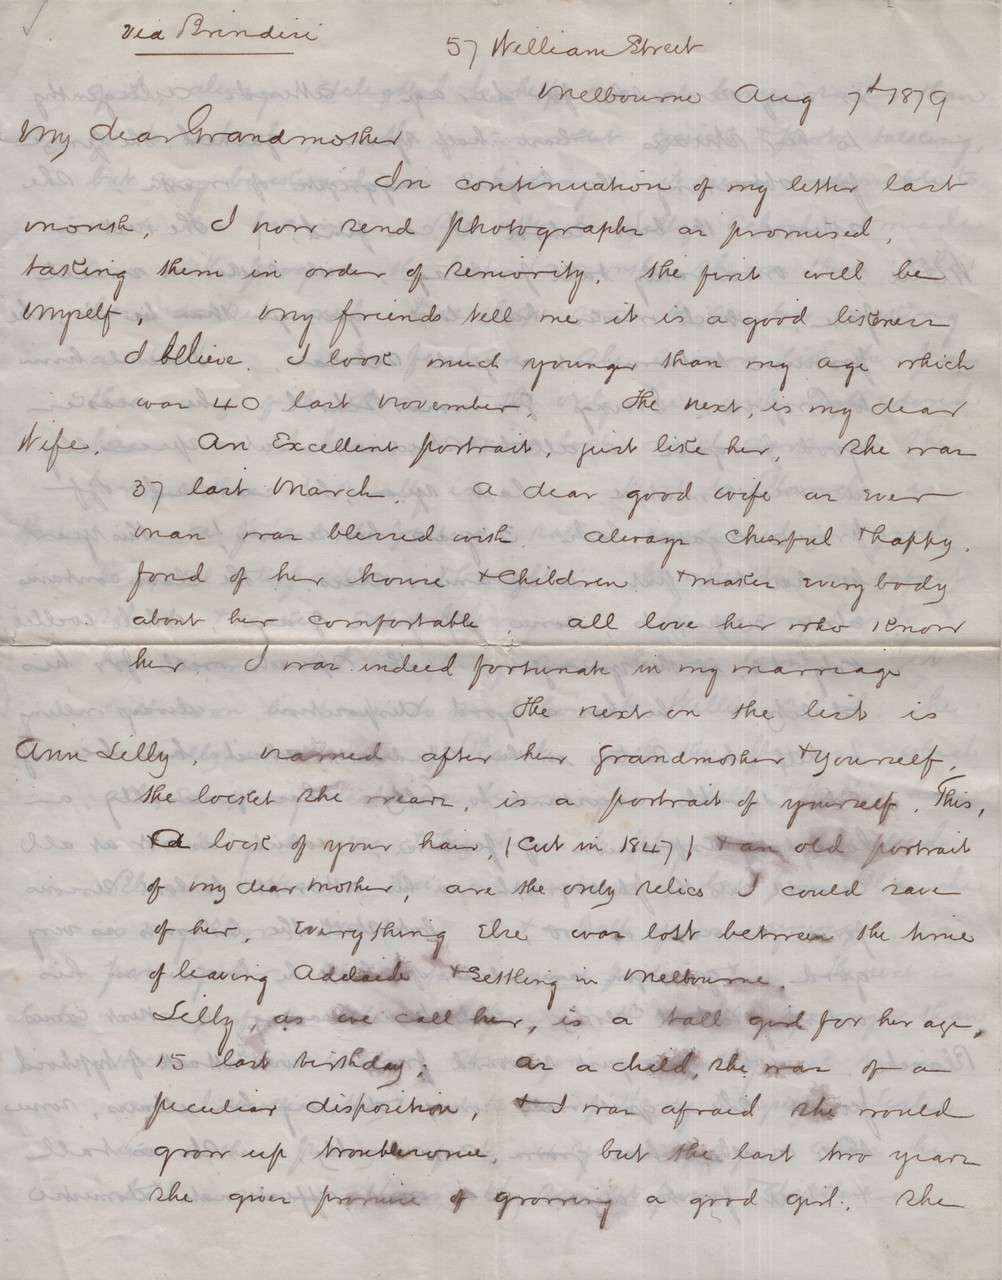 via Brindisi
57 William Street
Melbourne Aug 7th 1879
My dear Grandmother
In continuation of my letter last
month, I now send photographs as promised,
taking them in order of seniority. the first will be
myself, my friends tell me it is a good likeness
I believe. I look much younger than my age which
was 40 last November. The next, is my dear
Wife. An Excellent portrait, just like her, she was
37 last March. a dear good wife as ever
man was blessed with. always cheerful & happy.
fond of her house & children & makes every body
about her comfortable, all love her who know
her I was indeed fortunate in my marriage
The next on the list is
Ann Lilly, named after her Grandmother & yourself.
the locket she wears, is a portrait of yourself. This,
a lock of your hair, (cut in 1847) & an old portrait
of my dear mother, are the only relics I could save
of her, Everything Else was lost between the time
of leaving Adelaide & settling in Melbourne.
Lilly, as we call her, is a tall girl for her age,
15 last birthday; as a child, she was of a
peculiar disposition, & I was afraid she would
grow up troublesome. but the last two years
she gives promise of growing a good girl. She